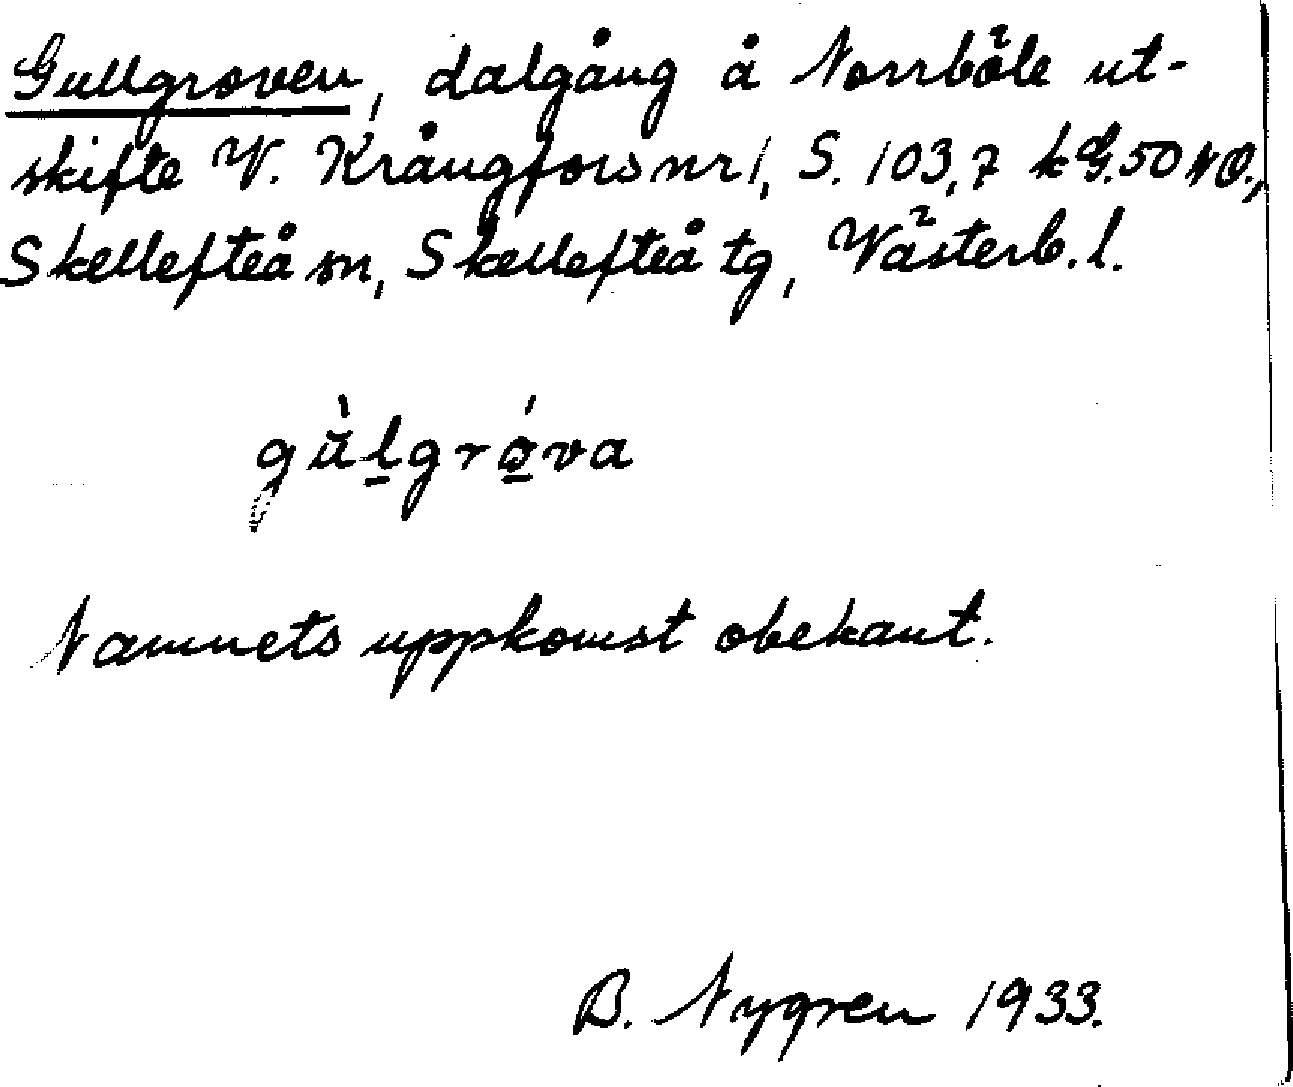 Gullgroven, dalgång å Norrböle ut-
skifte V. Krångfors nr 1, S. 103,7 kG.50 NO.,
Skellefteå sn, Skellefteå tg, Västerb. l.
gu̇̀l̲gró̲va
Namnets uppkomst obekant.
B. Nygren 1933.